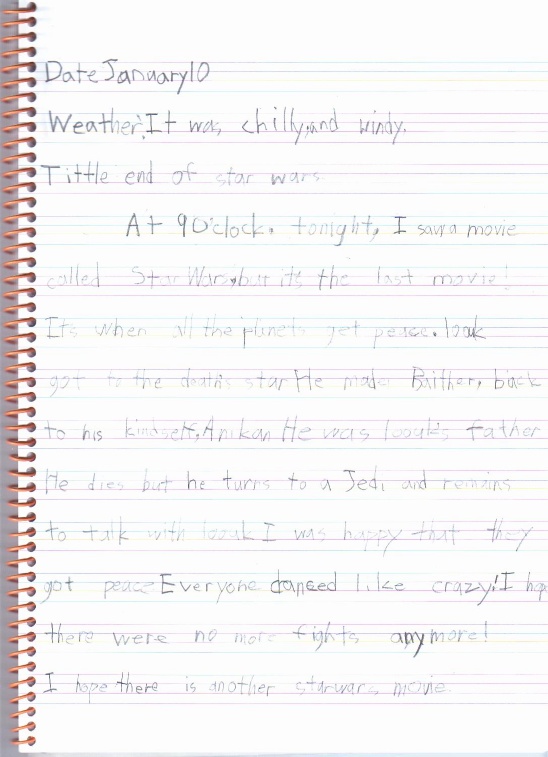 Date January 10
Weather: It was chilly, and windy.
Tittle end of star wars
At 9 O'clock. tonight, I saw a movie
called Star Wars, but its the last movie!
It's when all the planets get peace. look
got to the death's star He made back
to his kindself, Anikan He was loook's father
He dies but he turns to a Jedi, and remains
to talk with loouk I was happy that they
got peace Everyone danced like crazy! I hop
there were no more fights anymore!
I hope there is another starwars movie.